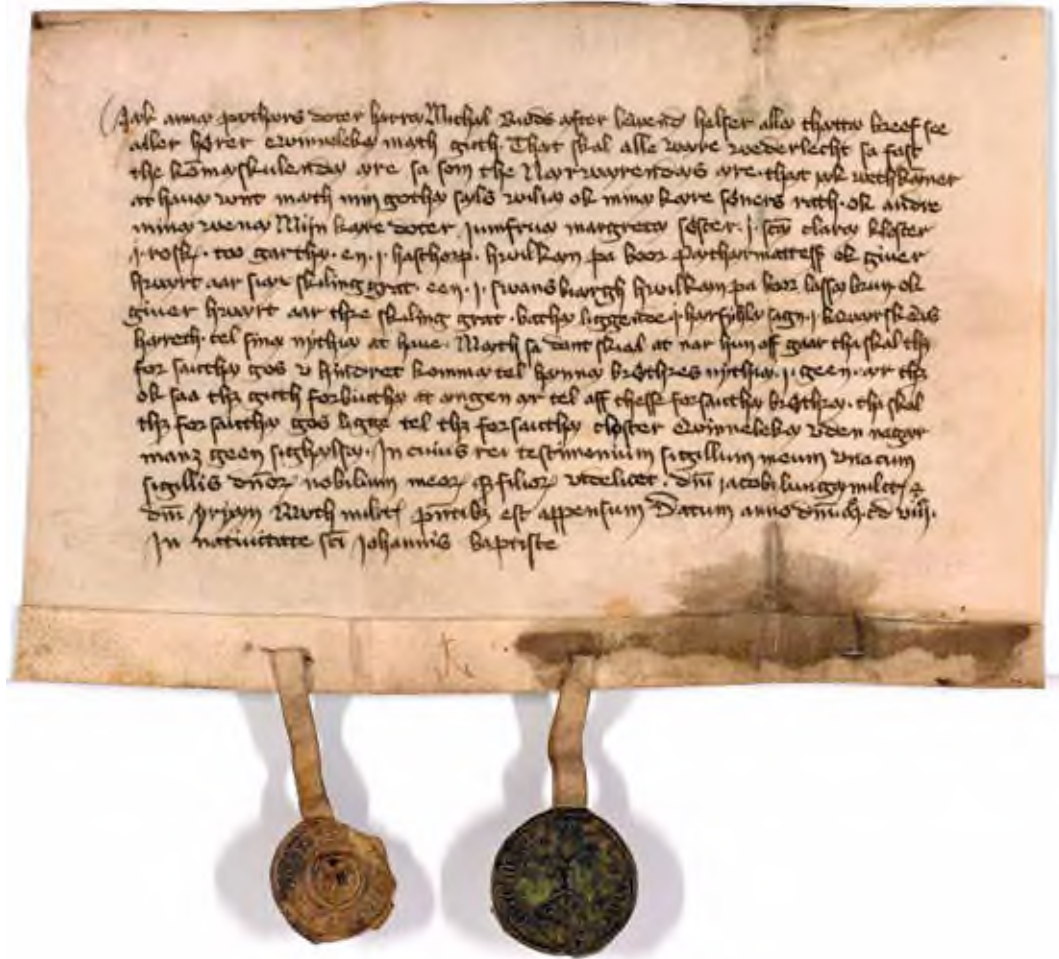 Jak anna pæthers doter herra Michal Ruds æfter leuend helser alle thætta breef see
aller hører ewinneleka mæth guth. Thæt skal alle ware wederlecht sa fast
the komaskulenda ære sa som the Nærwærendæs ære. thæt jak wethkænner
at haua wnt mæth min gotha wilia ok mina kære søners rath. ok andre
mina wena Mijn kære doter jumfrua margreta søster. j. scā clara kloster
j. rosk. too gartha. en. j. hasthorp. hwilkæn pa boor pæthar mattess ok giuer
hwært aar siax skiling grat. een. j. swansbiærgh hwilkæn pa boor lassa brun ok
giuer hwært aar thre skiling grat. batha liggende j harfyhla sogn. j. bawærskows
hæreth. tel sina nythia at haue. Mæth sa dant skial at nar hun off gaar tha skal thz
for saitha gos v hindret komma tel hænna brøthres nythia. j. geen. ær thz
ok saa thz guth forbiutha at ængen ær tel aff thesse forsaitha brøthra. tha skal
thz for saitha gos ligge tel thz forsaitha closter ewinneleka vden nagær
manz geen sighælsa. In cuius rei testimonium sigillum meum vnacum
sigillis dn̄or nobilium meor filior videlicet. dn̄i jacobi lunga milit
dn̄i yrian Ruth milit pn̄tib est appensum Datum anno dn̄i m cd viij.
In natiuitate sc̄i Johannis baptiste